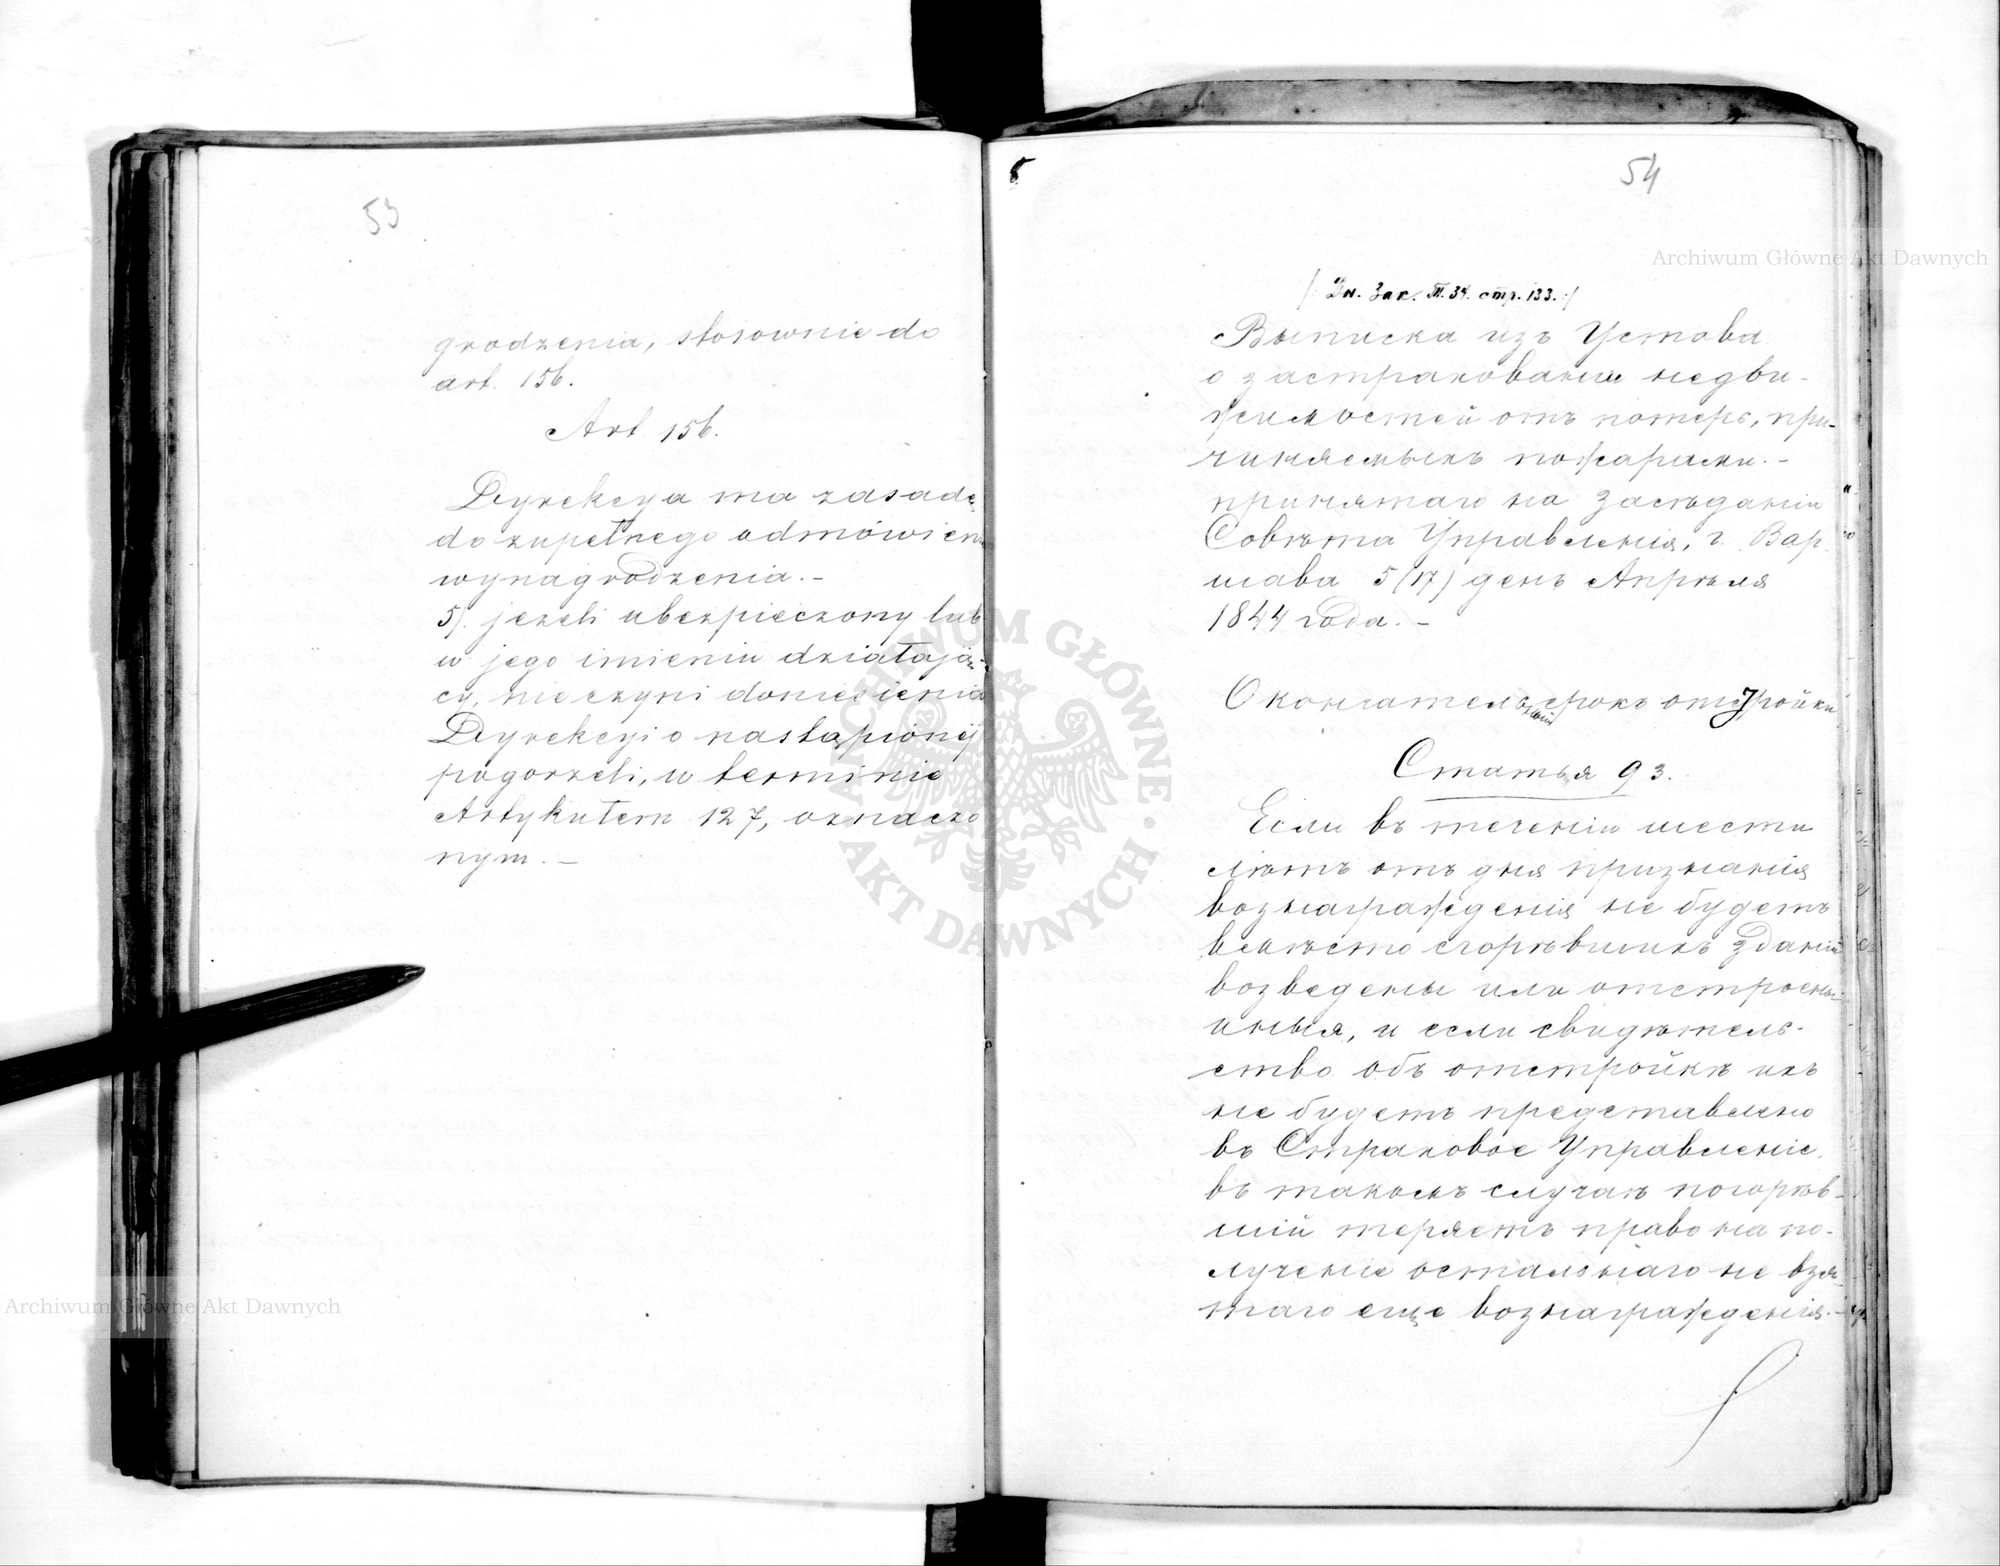 53
grodzenia, stosownie do
art. 156.
Art 156.
Dyrekcya ma zasadę
do zupełnego odmówien
wynagrodzenia. –
5). jeżeli ubezpieczony lub
w jego imieniu działają-
cy, nieczyni doniesienia
Dyrekcyi o nastąpionej
pogorzeli, w terminie
Artykułem 127, oznaczo
nym. –
54
/: Дн. Зак. Т. 34. стр. 133. :/
Выписка изъ Устава
о застраховании недви-
жимостей отъ потерь, при-
чиняемыхъ пожарами. –
принятаго на засѣдании
Совѣта Управленія, г. Вар
шава 5 (17) день Апрѣля
1844 года. –
Окончательный срокъ отстройки
Статья 93.
Если въ теченіи шести
лѣтъ отъ дня признанія
вознагражденія не будетъ
вмѣсто сгорѣвшихъ зданій
возведены или отстроены
иныя, и если свидѣтель-
ство объ отстройкѣ ихъ
не будетъ представлено
въ Страховое Управленіе,
въ такомъ случаѣ погорѣв-
шій теряетъ право на по-
лученіе остальнаго не взя-
таго еще вознагражденія. –
Archiwum Główne Akt Dawnych
ARCHIWUM GŁÓWNE AKT DAWNYCH
Archiwum Główne Akt Dawnych